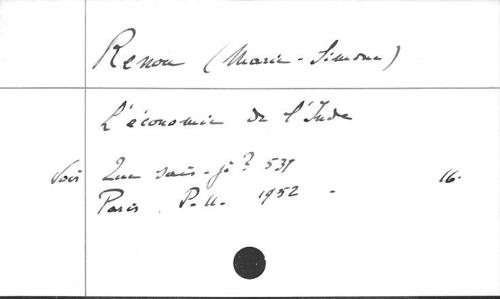 Renou (Marie-Simone)
L'économie de l'Inde
Voir Que sais-je? 537
Paris. P.U. 1952 - 16.